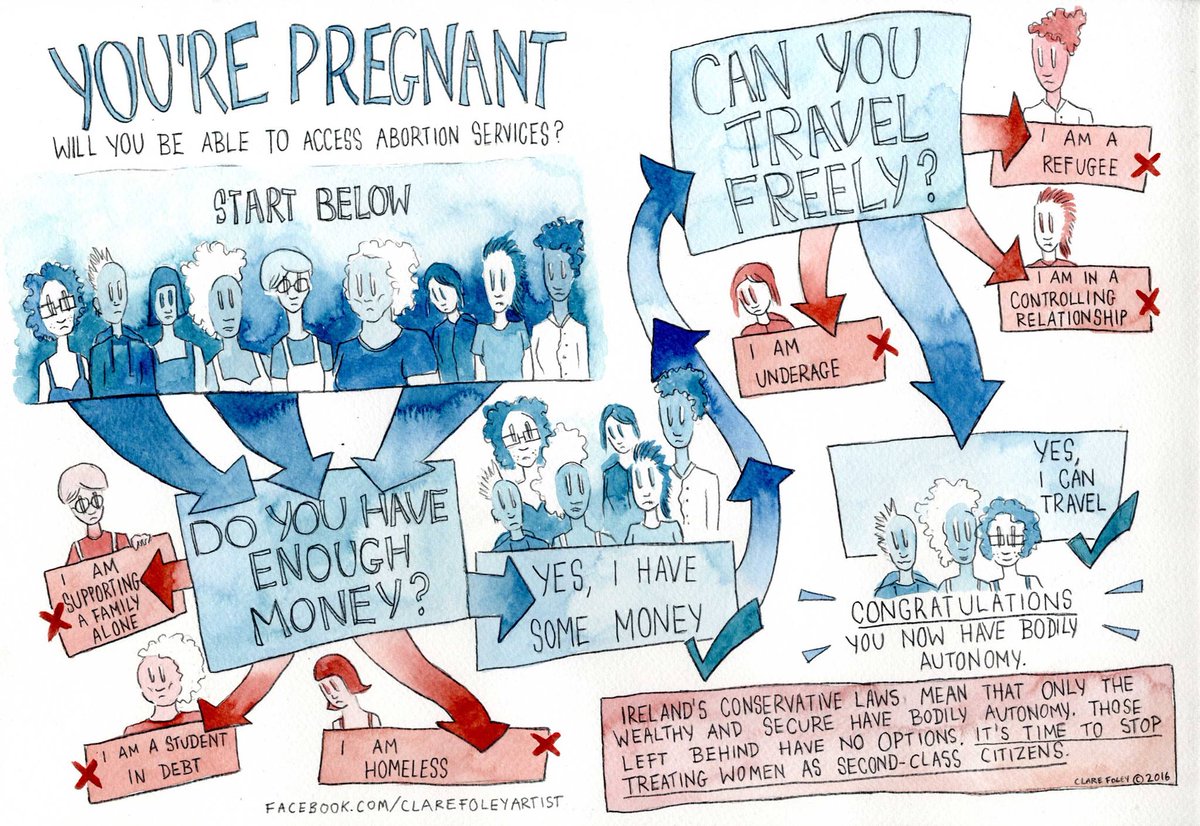 YOU'RE PREGNANT
WILL YOU BE ABLE TO ACCESS ABORTION SERVICES?
START BELOW
DO YOU HAVE
ENOUGH
MONEY?
I AM
SUPPORTING
A FAMILY
ALONE
I AM A STUDENT
IN DEBT
I AM
HOMELESS
YES, I HAVE
SOME MONEY
CAN YOU
TRAVEL
FREELY?
I AM A
REFUGEE
I AM IN A
CONTROLLING
RELATIONSHIP
I AM
UNDERAGE
YES,
I CAN
TRAVEL
CONGRATULATIONS
YOU NOW HAVE BODILY
AUTONOMY.
IRELAND'S CONSERVATIVE LAWS MEAN THAT ONLY THE
WEALTHY AND SECURE HAVE BODILY AUTONOMY. THOSE
LEFT BEHIND HAVE NO OPTIONS. IT'S TIME TO STOP
TREATING WOMEN AS SECOND-CLASS CITIZENS.
CLARE FOLEY © 2016
FACEBOOK.COM/CLAREFOLEYARTIST